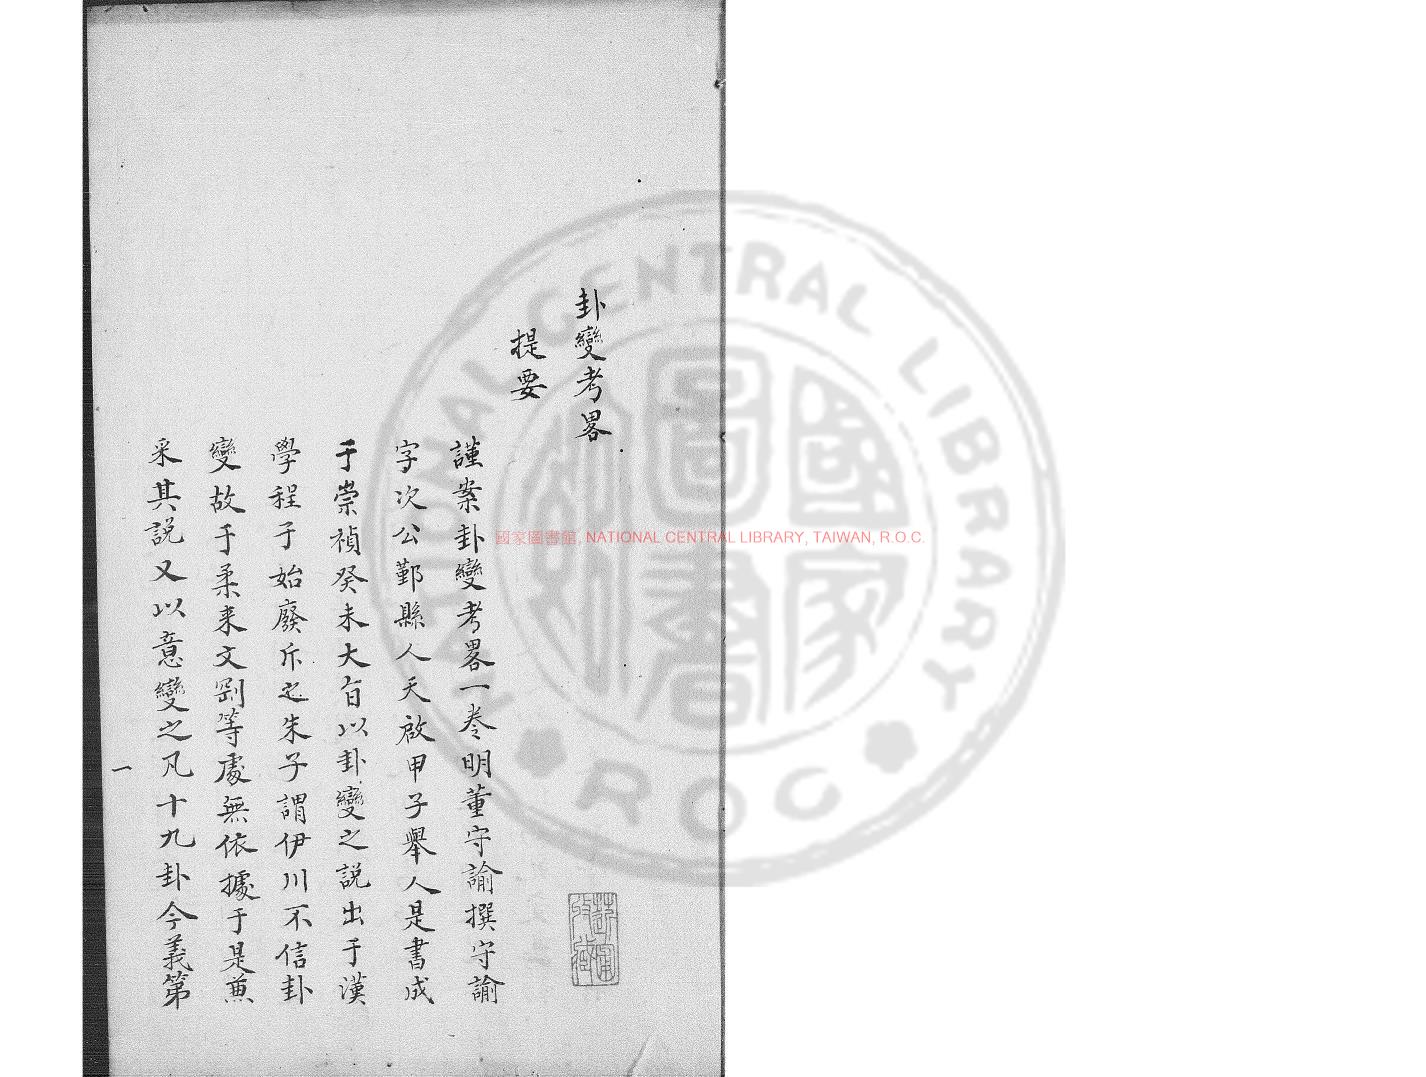 卦變考畧
提要
謹案卦變考畧一卷明董守諭撰守諭
字次公鄞縣人天啟甲子舉人是書成
于崇禎癸未大旨以卦變之説出于漢
學程子始廢斥之朱子謂伊川不信卦
變故于柔来文剛等處無依據于是兼
采其説又以意變之凡十九卦今義第
一
國家圖書館, NATIONAL CENTRAL LIBRARY, TAIWAN, R.O.C.
NATIONAL CENTRAL LIBRARY
R O C
國家圖書